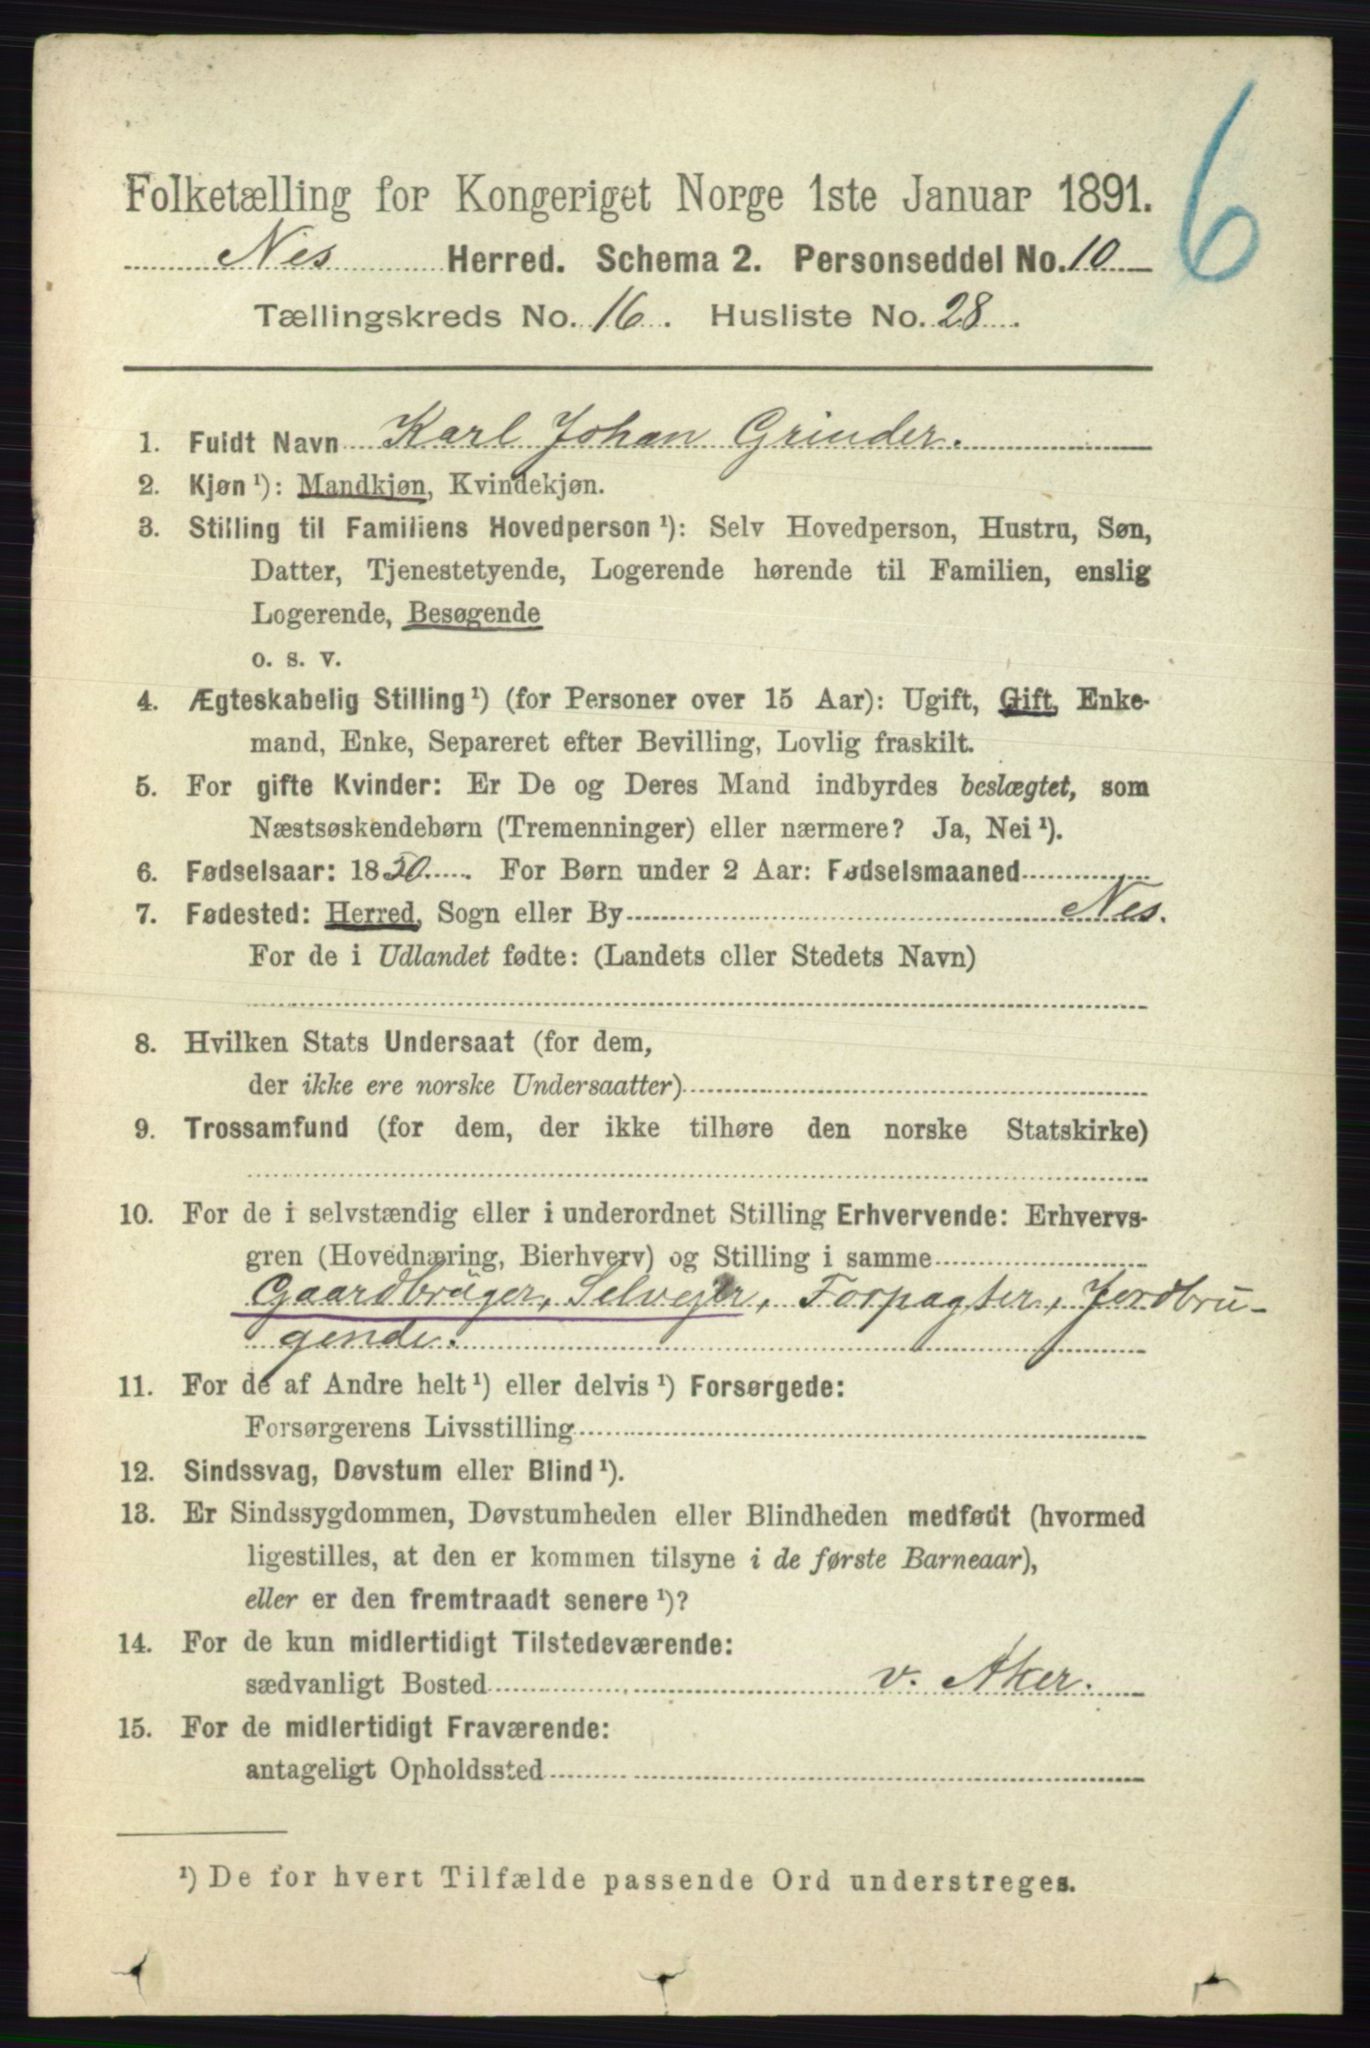 6
Folketælling for Kongeriget Norge 1ste Januar 1891.
Nes Herred. Schema 2. Personseddel No. 10
Tællingskreds No. 16. Husliste No. 28.
1. Fuldt Navn Karl Johan Grinder.
2. Kjøn¹): Mandkjøn, Kvindekjøn.
3. Stilling til Familiens Hovedperson¹): Selv Hovedperson, Hustru, Søn,
Datter, Tjenestetyende, Logerende hørende til Familien, enslig
Logerende, Besøgende
o. s. v.
4. Ægteskabelig Stilling¹) (for Personer over 15 Aar): Ugift, Gift, Enke-
mand, Enke, Separeret efter Bevilling, Lovlig fraskilt.
5. For gifte Kvinder: Er De og Deres Mand indbyrdes beslægtet, som
Næstsøskendebørn (Tremenninger) eller nærmere? Ja, Nei¹).
6. Fødselsaar: 1850. For Børn under 2 Aar: Fødselsmaaned
7. Fødested: Herred, Sogn eller By Nes.
For de i Udlandet fødte: (Landets eller Stedets Navn)
8. Hvilken Stats Undersaat (for dem,
der ikke ere norske Undersaatter)
9. Trossamfund (for dem, der ikke tilhøre den norske Statskirke)
10. For de i selvstændig eller i underordnet Stilling Erhvervende: Erhvervs-
gren (Hovednæring, Bierhverv) og Stilling i samme
Gaardbruger, Selvejer, Forpagter, Jordbru-
gende.
11. For de af Andre helt¹) eller delvis¹) Forsørgede:
Forsørgerens Livsstilling
12. Sindssvag, Døvstum eller Blind¹).
13. Er Sindssygdommen, Døvstumheden eller Blindheden medfødt (hvormed
ligestilles, at den er kommen tilsyne i de første Barneaar),
eller er den fremtraadt senere¹)?
14. For de kun midlertidigt Tilstedeværende:
sædvanligt Bosted v. Aker.
15. For de midlertidigt Fraværende:
antageligt Opholdssted
¹) De for hvert Tilfælde passende Ord understreges.